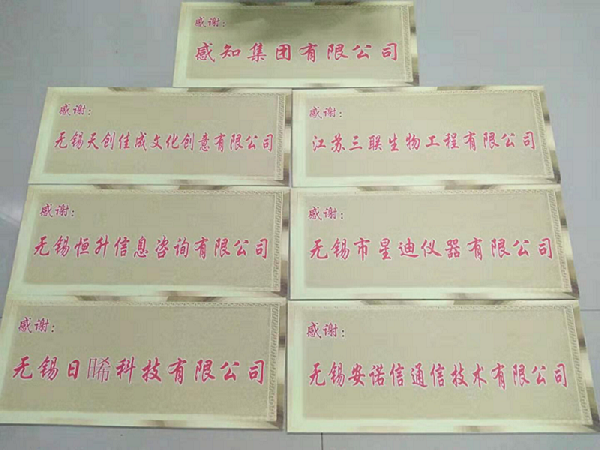 感谢：
感知集团有限公司
感谢：
无锡天创佳成文化创意有限公司
感谢：
江苏三联生物工程有限公司
感谢：
无锡恒升信息咨询有限公司
感谢：
无锡市星迪仪器有限公司
感谢：
无锡日睎科技有限公司
感谢：
无锡安诺信通信技术有限公司